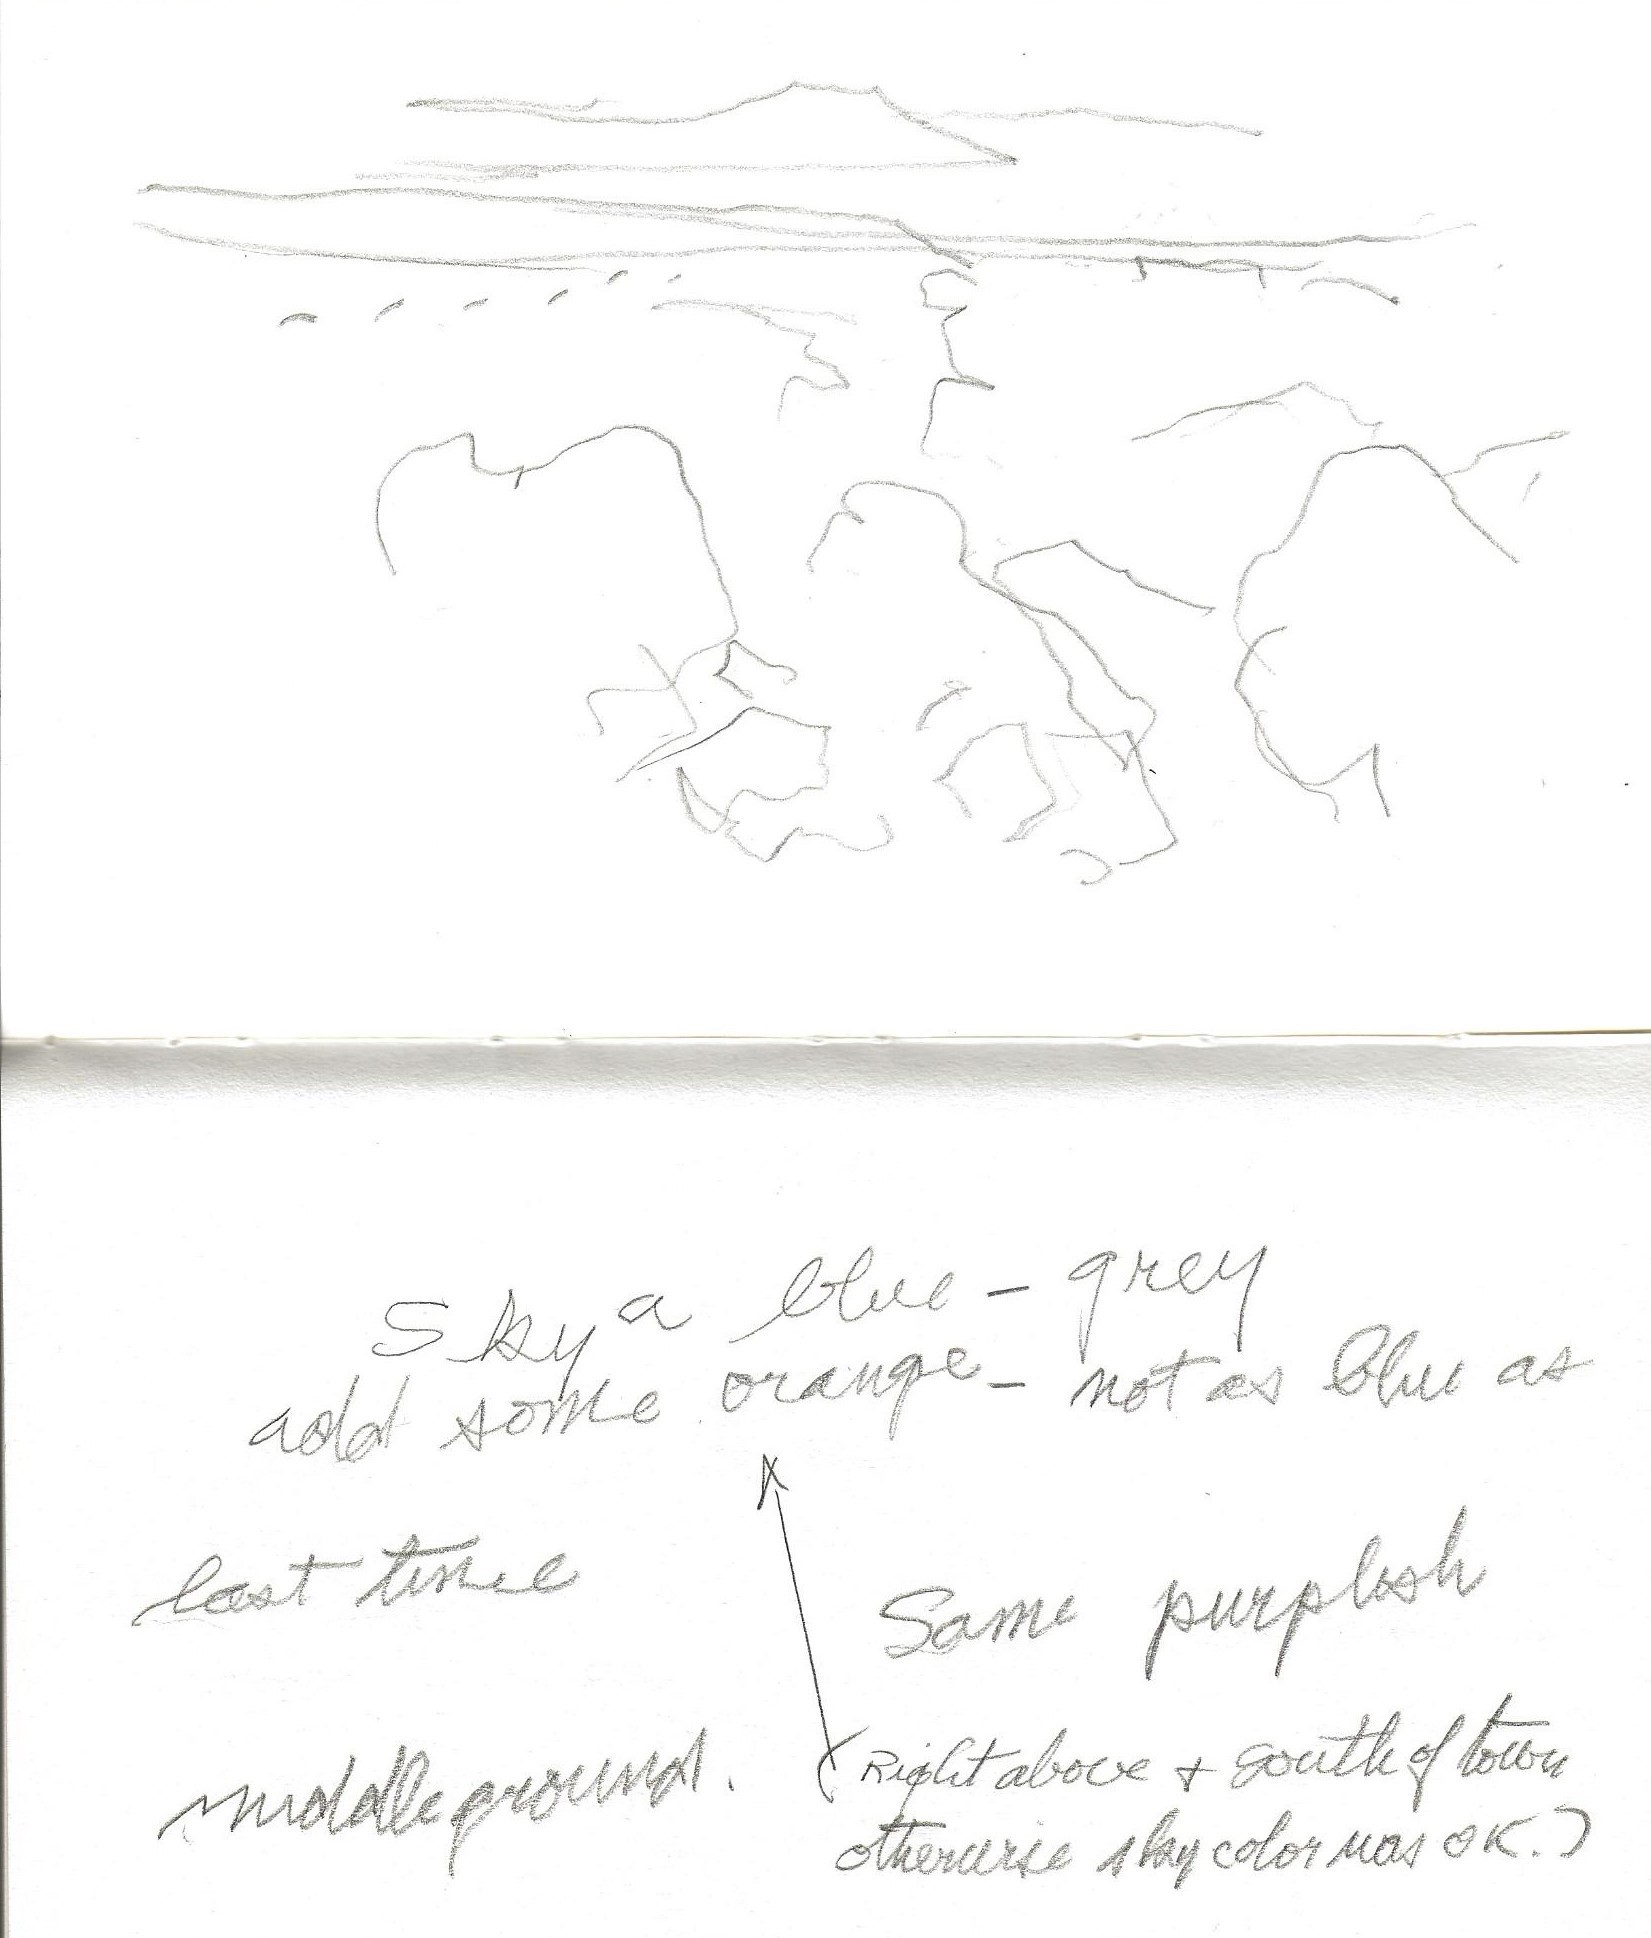 Sky a blue – grey
add some orange – not as blue as
last time
Same purplish
middleground.
(Right above + south of town
otherwise sky color was OK.)